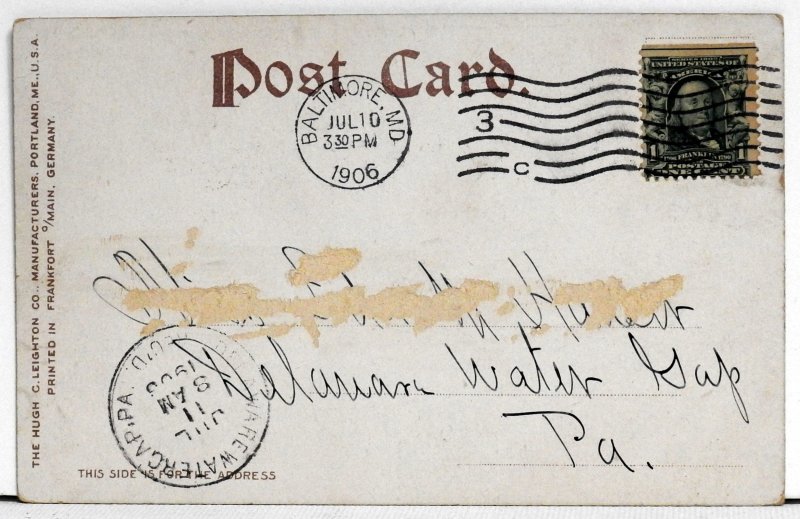 Post Card.
BALTIMORE, MD.
JUL 10
3 30 PM
1906
3
C
SERIES 1902
UNITED STATES OF
AMERICA
1706 FRANKLIN 1790
POSTAGE
ONE CENT
THE HUGH C. LEIGHTON CO., MANUFACTURERS, PORTLAND, ME., U.S.A.
PRINTED IN FRANKFORT O/MAIN, GERMANY.
Miss
Delaware Water Gap
Pa.
DELAWARE WATER GAP, PA.
REC'D.
JUL
11
8 AM
1906
THIS SIDE IS FOR THE ADDRESS